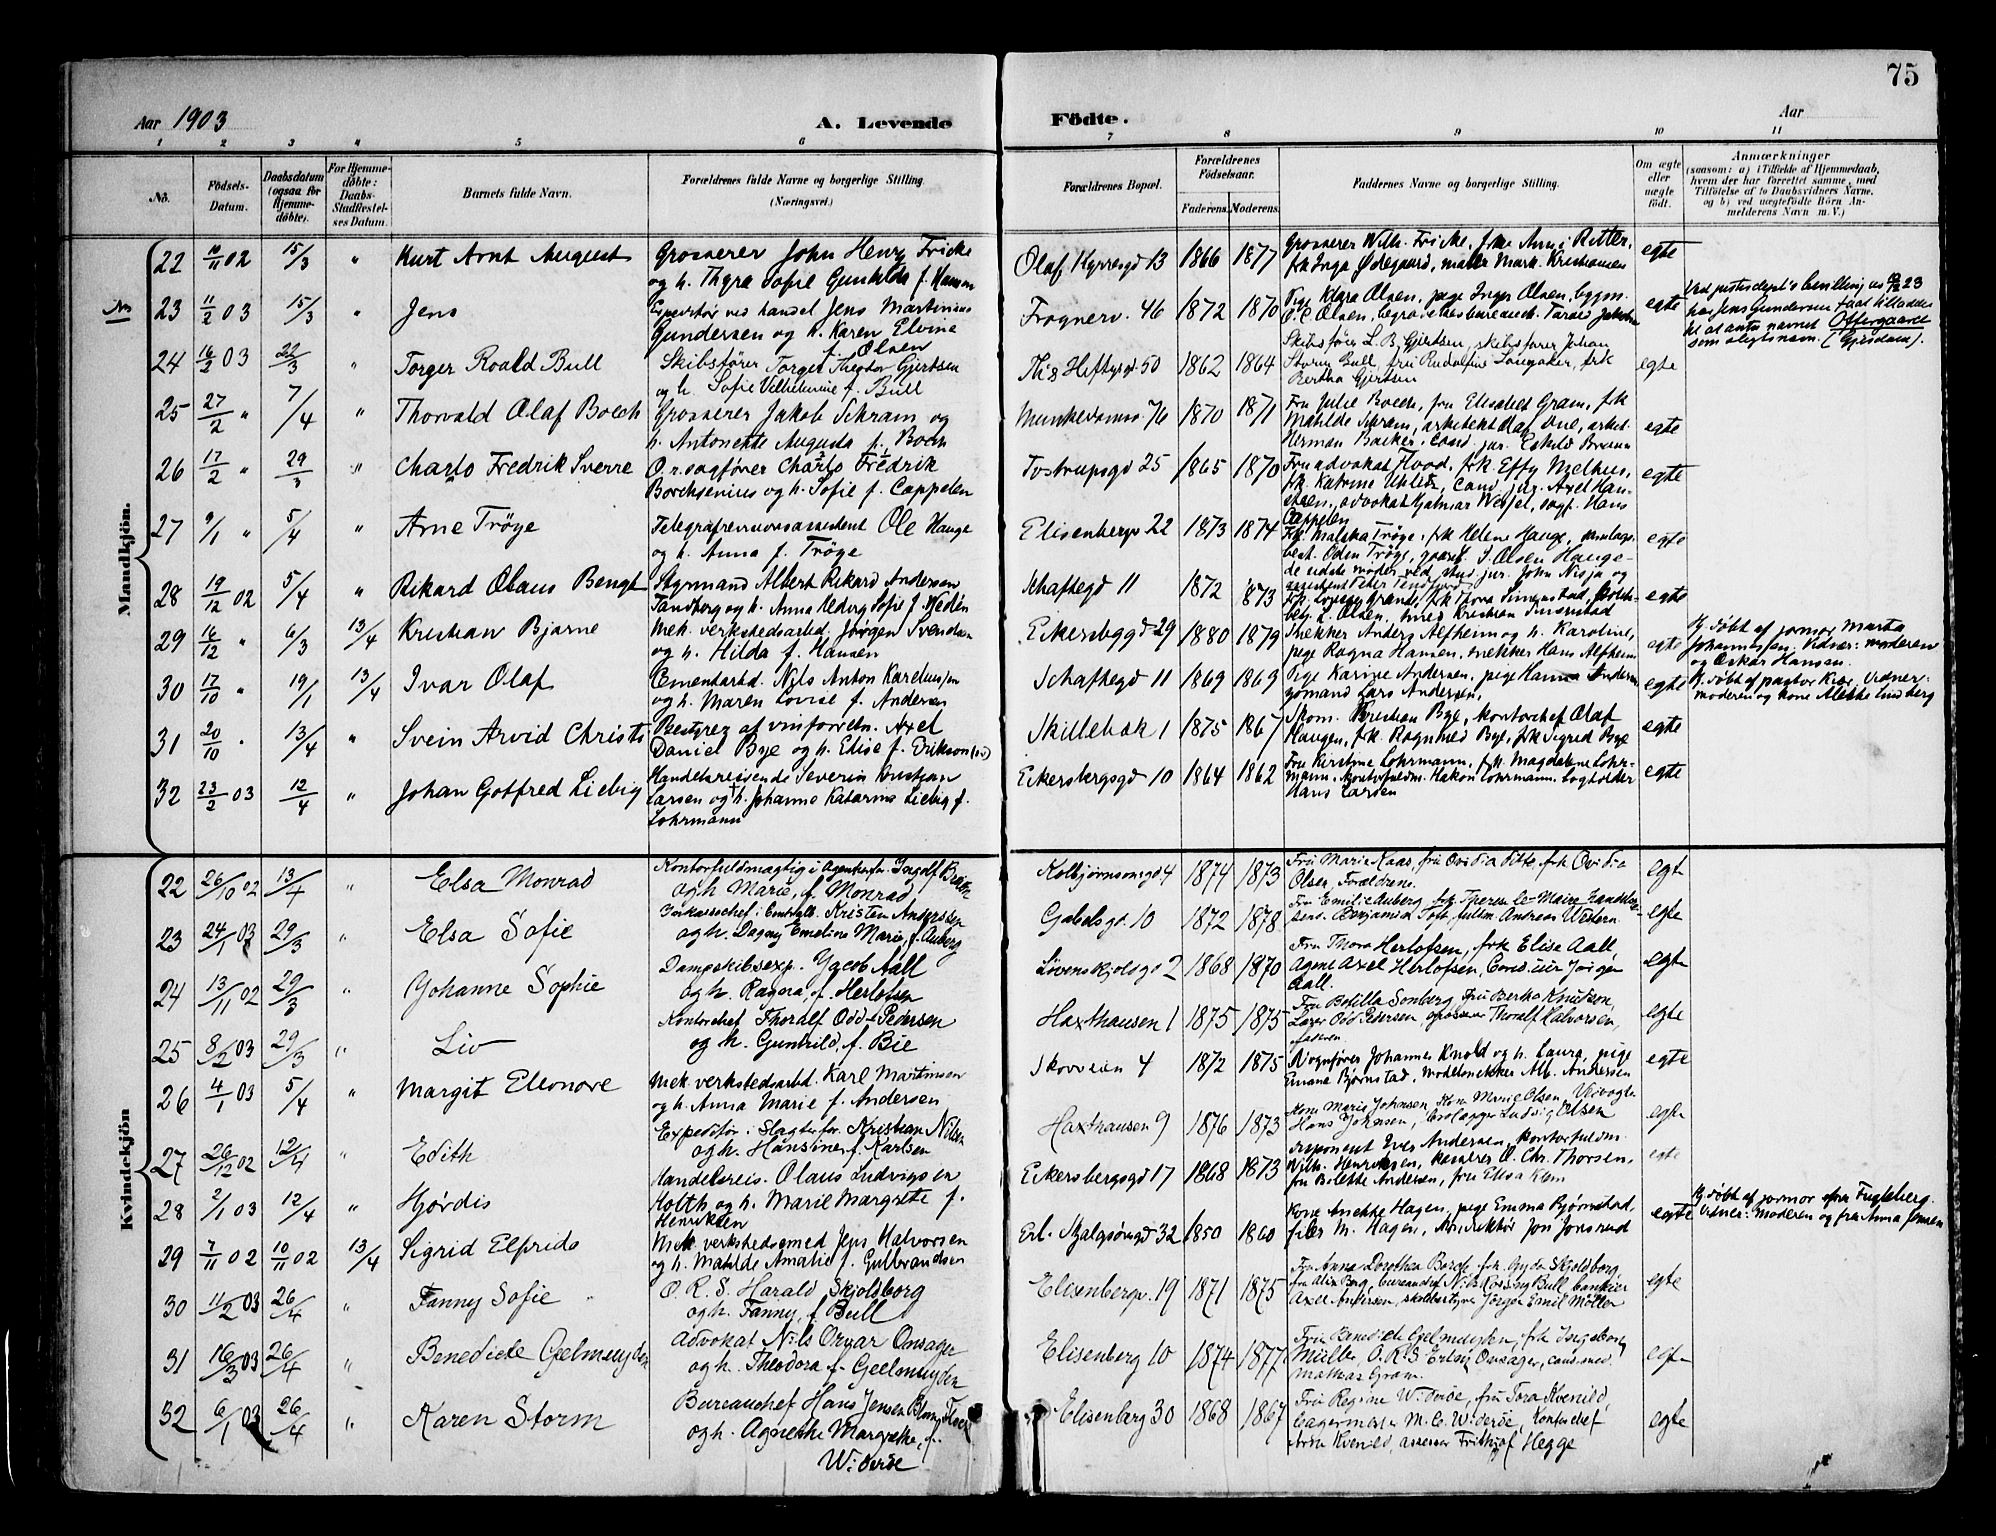 75
Aar 1903
A. Levende Födte.
Aar
1 2 3 4 5 6 7 8 9 10 11
No.
Födsels-Datum.
Daabsdatum (ogsaa for Hjemmedöbte).
For Hjemmedöbte: Daabs-Stadfæstelses Datum.
Barnets fulde Navn.
Forældrenes fulde Navne og borgerlige Stilling. (Næringsvei.)
Forældrenes Bopæl.
Forældrenes Födselsaar.
Faderens. Moderens.
Faddernes Navne og borgerlige Stilling.
Om ægte eller uægte födt.
Anmærkninger
(saasom: a) i Tilfælde af Hjemmedaab, hvem der har forrettet samme, med Tilföielse af to Daabsvidners Navne, og b) ved uægtefödte Börn Anmelderens Navn m. V.)
Mandkjön.
22 10/11 02 15/3 " Kurt Arnt August Grosserer John Henry Fricke og h. Thyra Sofie Gunhilda f. Hansen Olaf Kyrresgd 13 1866 1877 Grosserer Wilh. Fricke, frk. Anni Ritter, frk Inga Ødegaard, maler Mark. Kristiansen egte
23 11/2 03 15/3 " Jens Expeditør ved handel Jens Martinius Gundersen og h. Karen Elvine f. Olsen Frognerv. 46 1872 1870 Pige Klara Olsen, pige Inger Olsen, bygm. O. C. Olsen, begravelsesbureauch. egte
Ved justisdept's bevilling har Jens Gundersen faat tilladelse til at anta navnet Oftergaard som slegtsnavn. (Gjesdam).
24 16/2 03 22/3 " Torger Roald Bull Skibsfører Torger Theodor Gjertsen og h. Sofie Vilhelmine f. Bull Ths Heftyesgd 50 1862 1864 Skibsfører L. B. Gjertsen, skibsfører Johan Storm Bull, fru Rudolfine Langaker, frk Bertha Gjertsen egte
25 27/2 " 7/4 " Thorvald Olaf Boeck Grosserer Jakob Schram og h. Antonette Augusta f. Boeck Munkedamsv 76 1870 1871 Fru Julie Boeck, fru Elisabet Gram, frk Matilde Schram, arkitekt Olaf Due, arkit. Herman Backer, cand. jur. Eskild Bruun egte
26 17/2 " 29/3 " Charls Fredrik Sverre O.r.sagfører Charls Fredrik Borchsenius og h. Sofie f. Cappelen Tostrupsgd 25 1865 1870 Fru advokat Flood, frk. Effy Melhus, frk Katrine Uhlitz, cand. jur. Axel Hansteen, advokat Hjalmar Wessel, sagf. Hans Cappelen egte
27 9/1 " 5/4 " Arne Trøye Telegrafrevisionsassistent Ole Hauge og h. Anna f. Trøye Elisenbergv 22 1873 1874 Frk. Malska Trøye, frk Helene Hauge, Oden Trøye, J. Olsen Hauge de sidste møder ved stud. jur. John Nisja og assistent Peter egte
28 19/12 02 5/4 " Rikard Olaus Bengt Styrmand Albert Rikard Andersen Tandberg og h. Anna Hedvig Sofie f. Wedén Schaftegd 11 1872 1873 Frk. Lovise Grande, frk Thora Simenstad, L. Olsen, smed Kristian Simenstad egte
29 16/12 " 6/3 13/4 Kristian Bjarne Mek. verkstedsarbd. Jørgen Svendsen og h. Hilda f. Hansen Eckersbggd 29 1880 1879 Snekker Anders Alfheim og h. Karoline, pige Ragna Hansen, snekker Hans Alfheim egte
Hj. døbt af jormor Marta Johannessen. Vidner: moderen og Oskar Hansen.
30 17/10 " 19/1 13/4 Ivar Olaf Cementarbd. Nils Anton Kareliussen og h. Maren Lovise f. Andersen Schaftegd 11 1869 1869 Pige Karine Andersen, pige Hanna Andersen sjømand Lars Andersen, egte
Hj. døbt af pastor Kiær. Vidner: moderen og kone Alette Lindberg
31 20/10 " 13/4 " Svein Arvid Christo Bestyrer af vinforretn. Axel Daniel Bye og h. Elise f. Erikson Skillebæk 1 1875 1867 Skom. Kristian Bye, kontorchef Olaf Haugen, frk. Ragnhild Bye, frk Sigrid Bye egte
32 23/2 03 12/4 " Johan Gotfred Liebig Handelsreisende Severin Kristian Larsen og h. Johanne Katarina Liebig f. Lohrmann Eckersbergsgd 10 1864 1862 Fru Kirstine Lohrmann, frk. Magdalene Lohrmann, kontorfuldm. Hakon Lohrmann, Hans Larsen egte
Kvindekjön
22 26/10 02 13/4 " Elsa Monrad Kontorfuldmægtig i Ingolf og h. Marie, f. Monrad Kolbjørnsensgd 4 1874 1873 Fru Marie Kaas, fru Ovidia Ditte, frk Ovidia Olsen, Forældrene. egt
23 24/1 03 29/3 " Elsa Sofie Inkassochef i Centralb. Kristen Anderssen og h. Dagny Emeline Marie, f. Auberg Gabelsgd. 10 1872 1878 Fru Emilie Auberg, frk Therese le-Maire, Benjamin Toft, fullm. Andreas Western egte
24 13/11 02 29/3 " Johanne Sophie Dampskibsexp. Jacob Aall og h. Ragna, f. Herlofsen Løvenskjoldsgd 2 1868 1870 Fru Thora Herlofsen, frk Elise Aall, Agent Axel Herlofsen, Cond uur Jørgen Aall. egte
25 8/2 03 29/3 " Liv Kontorchef Thoralf Odd-Pedersen og h. Gunhild, f. Bie Haxthausen 1 1875 1875 Fru Botilla Sonberg, Fru Bertha Knudsen, Odd Pedersen, grosserer Thoralf Halvorsen, faderen. egte
26 4/1 03 5/4 " Margit Eleonore Mek. verkstedsarbd. Karl Martinsen og h. Anna Marie f. Andersen Skovveien 4 1872 1875 Vognfører Johannes Knold og h. Laura, pige Emma Bjørnstad, modelsnekker Alb. Andersen egte
27 26/12 02 12/4 " Edith Expeditør i Slagterfor. Kristian Nilsen og h. Hansine f. Karlsen Haxthausen 9 1876 1873 Kone Marie Johnsen, Kone Marie Olsen, Hans Johnsen, Ludvig Olsen egte
28 2/1 03 12/4 " Hjørdis Handelsreis. Olaus Ludvigsen Holth og h. Marie Margrete f. Henriksen Eckersbergsgd 17 1868 1873 Disponent Iver Andersen, kontorfuldm. Wilh. Henriksen, kasserer O. Chr. Thorsen, fru Bolette Andersen, fru Elisa Klem egte
29 7/11 02 10/11 02 13/4 Sigrid Elfrida Mek. verkstedsmed Jens Halvorsen og h. Matilde Amalie f. Gulbrandsen Erl. Skjalgsønsgd 32 1850 1860 Kone Anette Hagen, pige Emma Bjørnstad, filer M. Hagen, Jon Jonsrud egte
Hj. døbt af jormor fru Fugleberg. Vidner: Moderen og fru Anna Jensen
30 11/2 03 26/4 " Fanny Sofie O. R. S. Harald Skjoldborg og h. Fanny, f. Bull Elisenbergv. 19 1871 1875 Fru Anna Dorothea Borch, frk. Gyda Skjoldborg, fru Alix Borg, bureauchef Nils Rosing Bull, bankier Axel Andersen, skolebestyrer Jørgen Emil Møller egte
31 16/3 03 26/4 " Benedicte Geelmuyden Advokat Nils Orgar Onsager og h. Theodora f. Geelmuyden Elisenberg 10 1874 1877 Fru Benedicte Geelmuyden, frk Ingeborg Müller, O.R.S. Erling Onsager, cand. med. Mathias Gram. egte
32 6/1 03 26/4 " Karen Storm Bureauchef Hans Jensen Blom og h. Agnethe Margrethe, f. Widerøe Elisenberg 30 1868 1867 Fru Regine Widerøe, fru Tora Kvenild, Lagermester M. C. Widerøe, Kontorchef Kvenild, assessor Frithjof Hegge egte